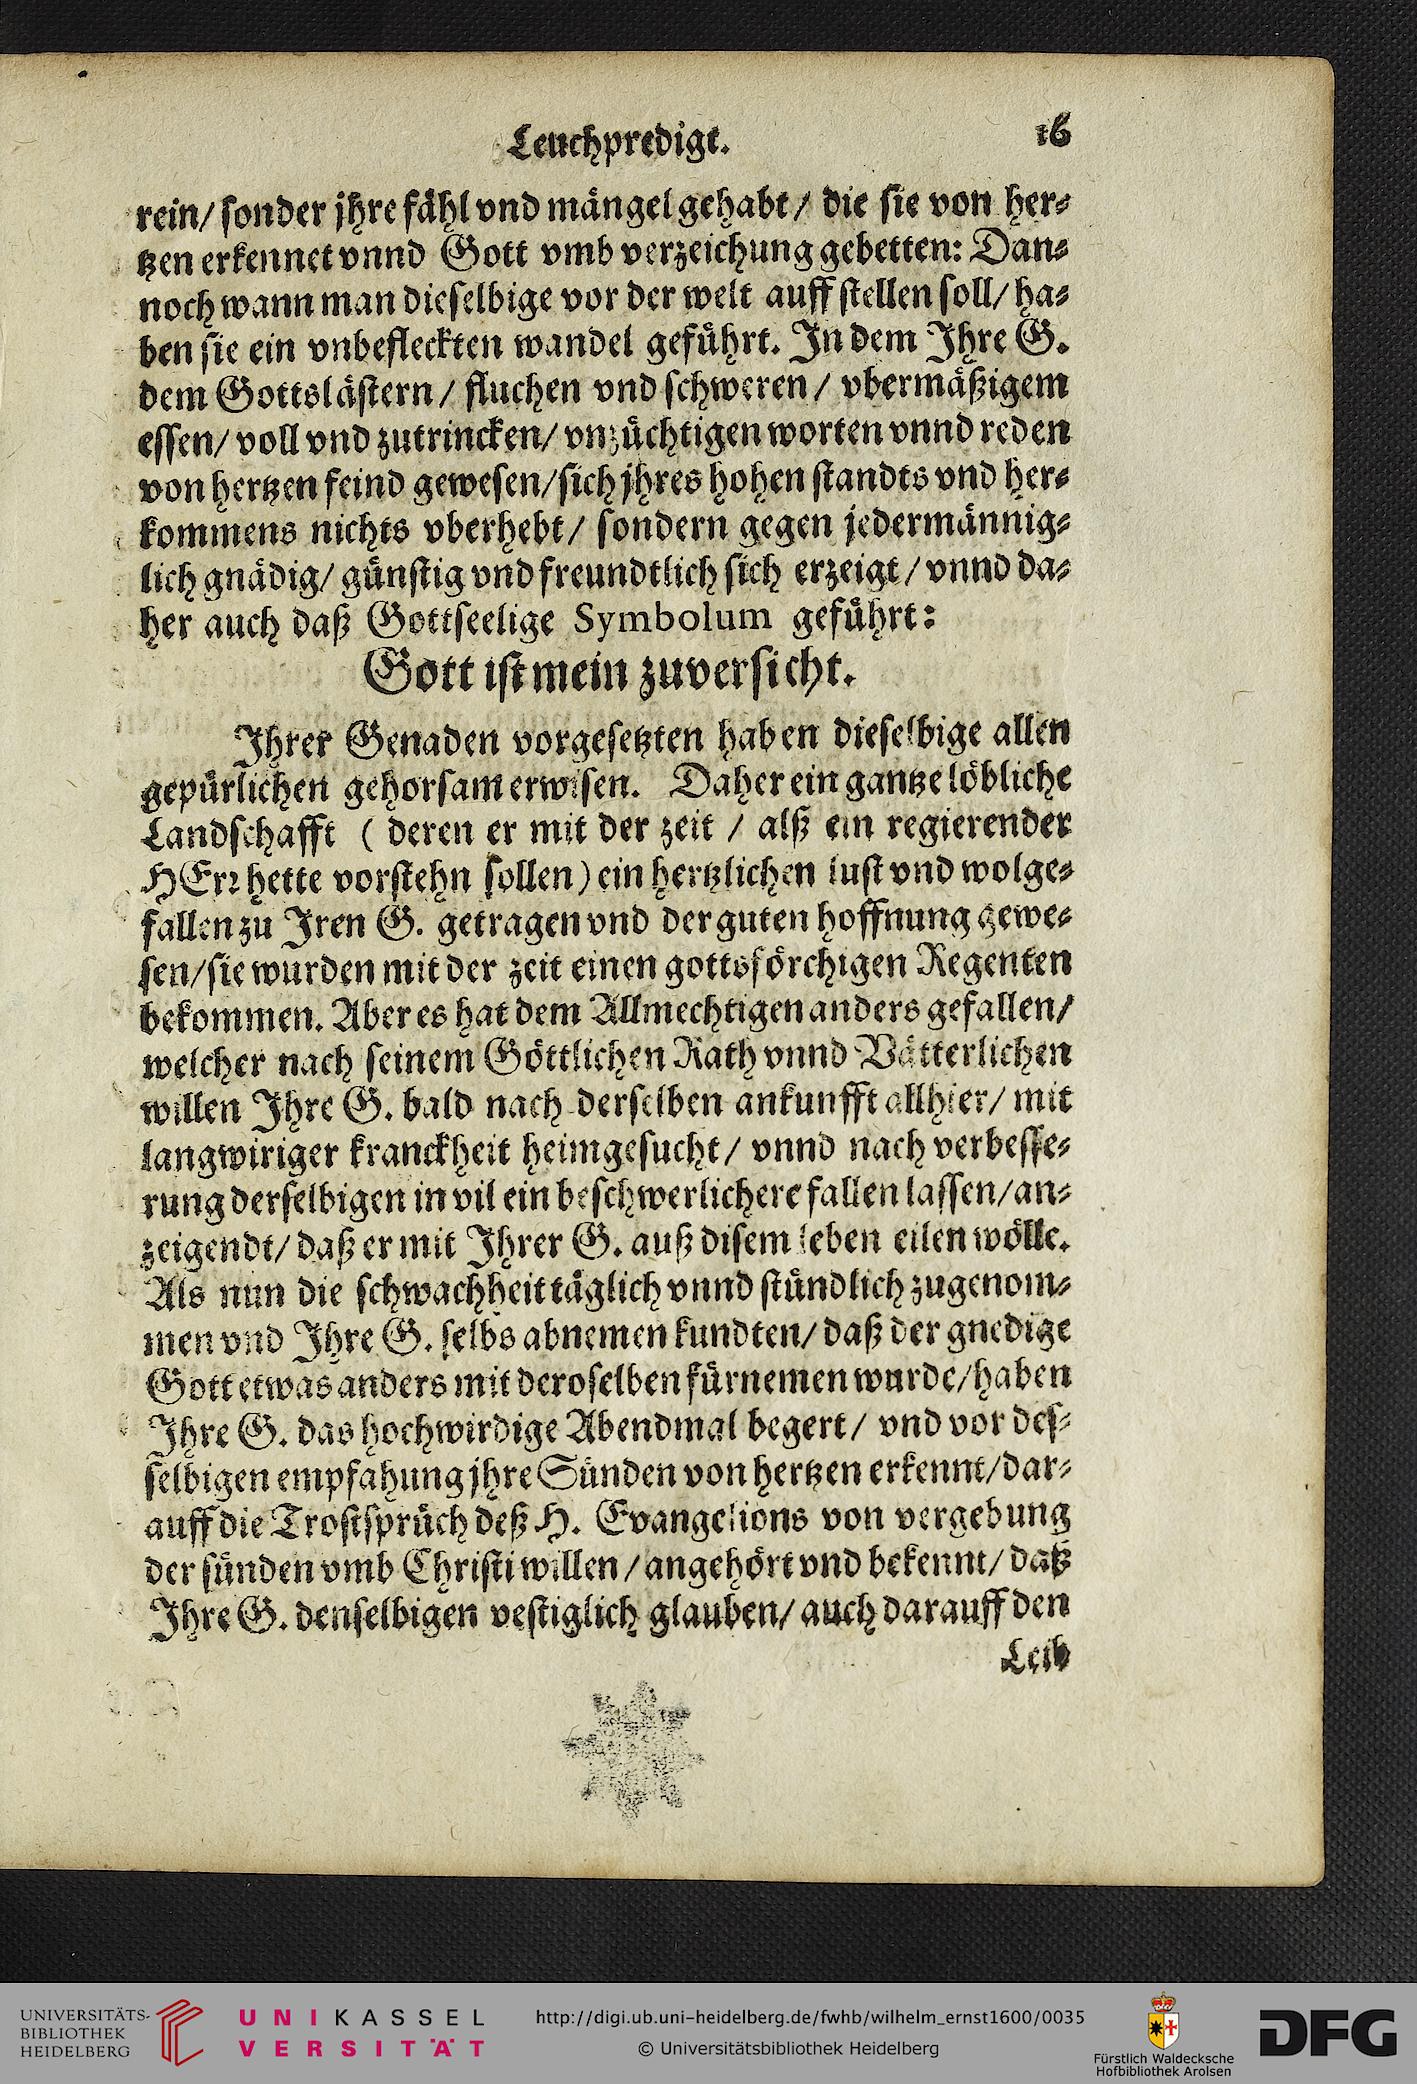 Leuchpredigt. 16
rein/ sonder jhre fähl vnd mängel gehabt/ die sie von her-
tzen erkennet vnnd Gott vmb verzeichung gebetten: Dan-
noch wann man dieselbige vor der welt auff stellen soll/ ha-
ben sie ein vnbefleckten wandel geführt. In dem Ihre G.
dem Gottslästern/ fluchen vnd schweren/ vbermäßigem
essen/ voll vnd zutrincken/ vnzüchtigen worten vnnd reden
von hertzen feind gewesen/ sich jhres hohen standts vnd her-
kommens nichts vberhebt/ sondern gegen jedermännig-
lich gnädig/ günstig vnd freundtlich sich erzeigt/ vnnd da-
her auch daß Gottseelige Symbolum geführt:
Gott ist mein zuversicht.
Ihrer Genaden vorgesetzten haben dieselbige allen
gepürlichen gehorsam erwisen. Daher ein gantze löbliche
Landschafft ( deren er mit der zeit / alß ein regierender
HErr hette vorstehn sollen) ein hertzlichen lust vnd wolge-
fallen zu Iren G. getragen vnd der guten hoffnung gewe-
sen/ sie wurden mit der zeit einen gottsförchigen Regenten
bekommen. Aber es hat dem Allmechtigen anders gefallen/
welcher nach seinem Göttlichen Rath vnnd Vätterlichen
willen Ihre G. bald nach derselben ankunfft allhier/ mit
langwiriger kranckheit heimgesucht/ vnnd nach verbesse-
rung derselbigen in vil ein beschwerlichere fallen lassen/ an-
zeigendt/ daß er mit Ihrer G. auß disem leben eilen wölle.
Als nun die schwachheit täglich vnnd stündlich zugenom-
men vnd Ihre G. selbs abnemen kundten/ daß der gnedige
Gott etwas anders mit deroselben fürnemen wurde/ haben
Ihre G. das hochwirdige Abendmal begert/ vnd vor des-
selbigen empfahung jhre Sünden von hertzen erkennt/ dar-
auff die Trostsprüch deß H. Evangelions von vergebung
der sünden vmb Christi willen/ angehört vnd bekennt/ daß
Ihre G. denselbigen vestiglich glauben/ auch darauff den
Leib
UNIVERSITÄTS-
BIBLIOTHEK
HEIDELBERG
UNIKASSEL
VERSITÄT
http://digi.ub.uni-heidelberg.de/fwhb/wilhelm_ernst1600/0035
© Universitätsbibliothek Heidelberg
Fürstlich Waldecksche
Hofbibliothek Arolsen
DFG